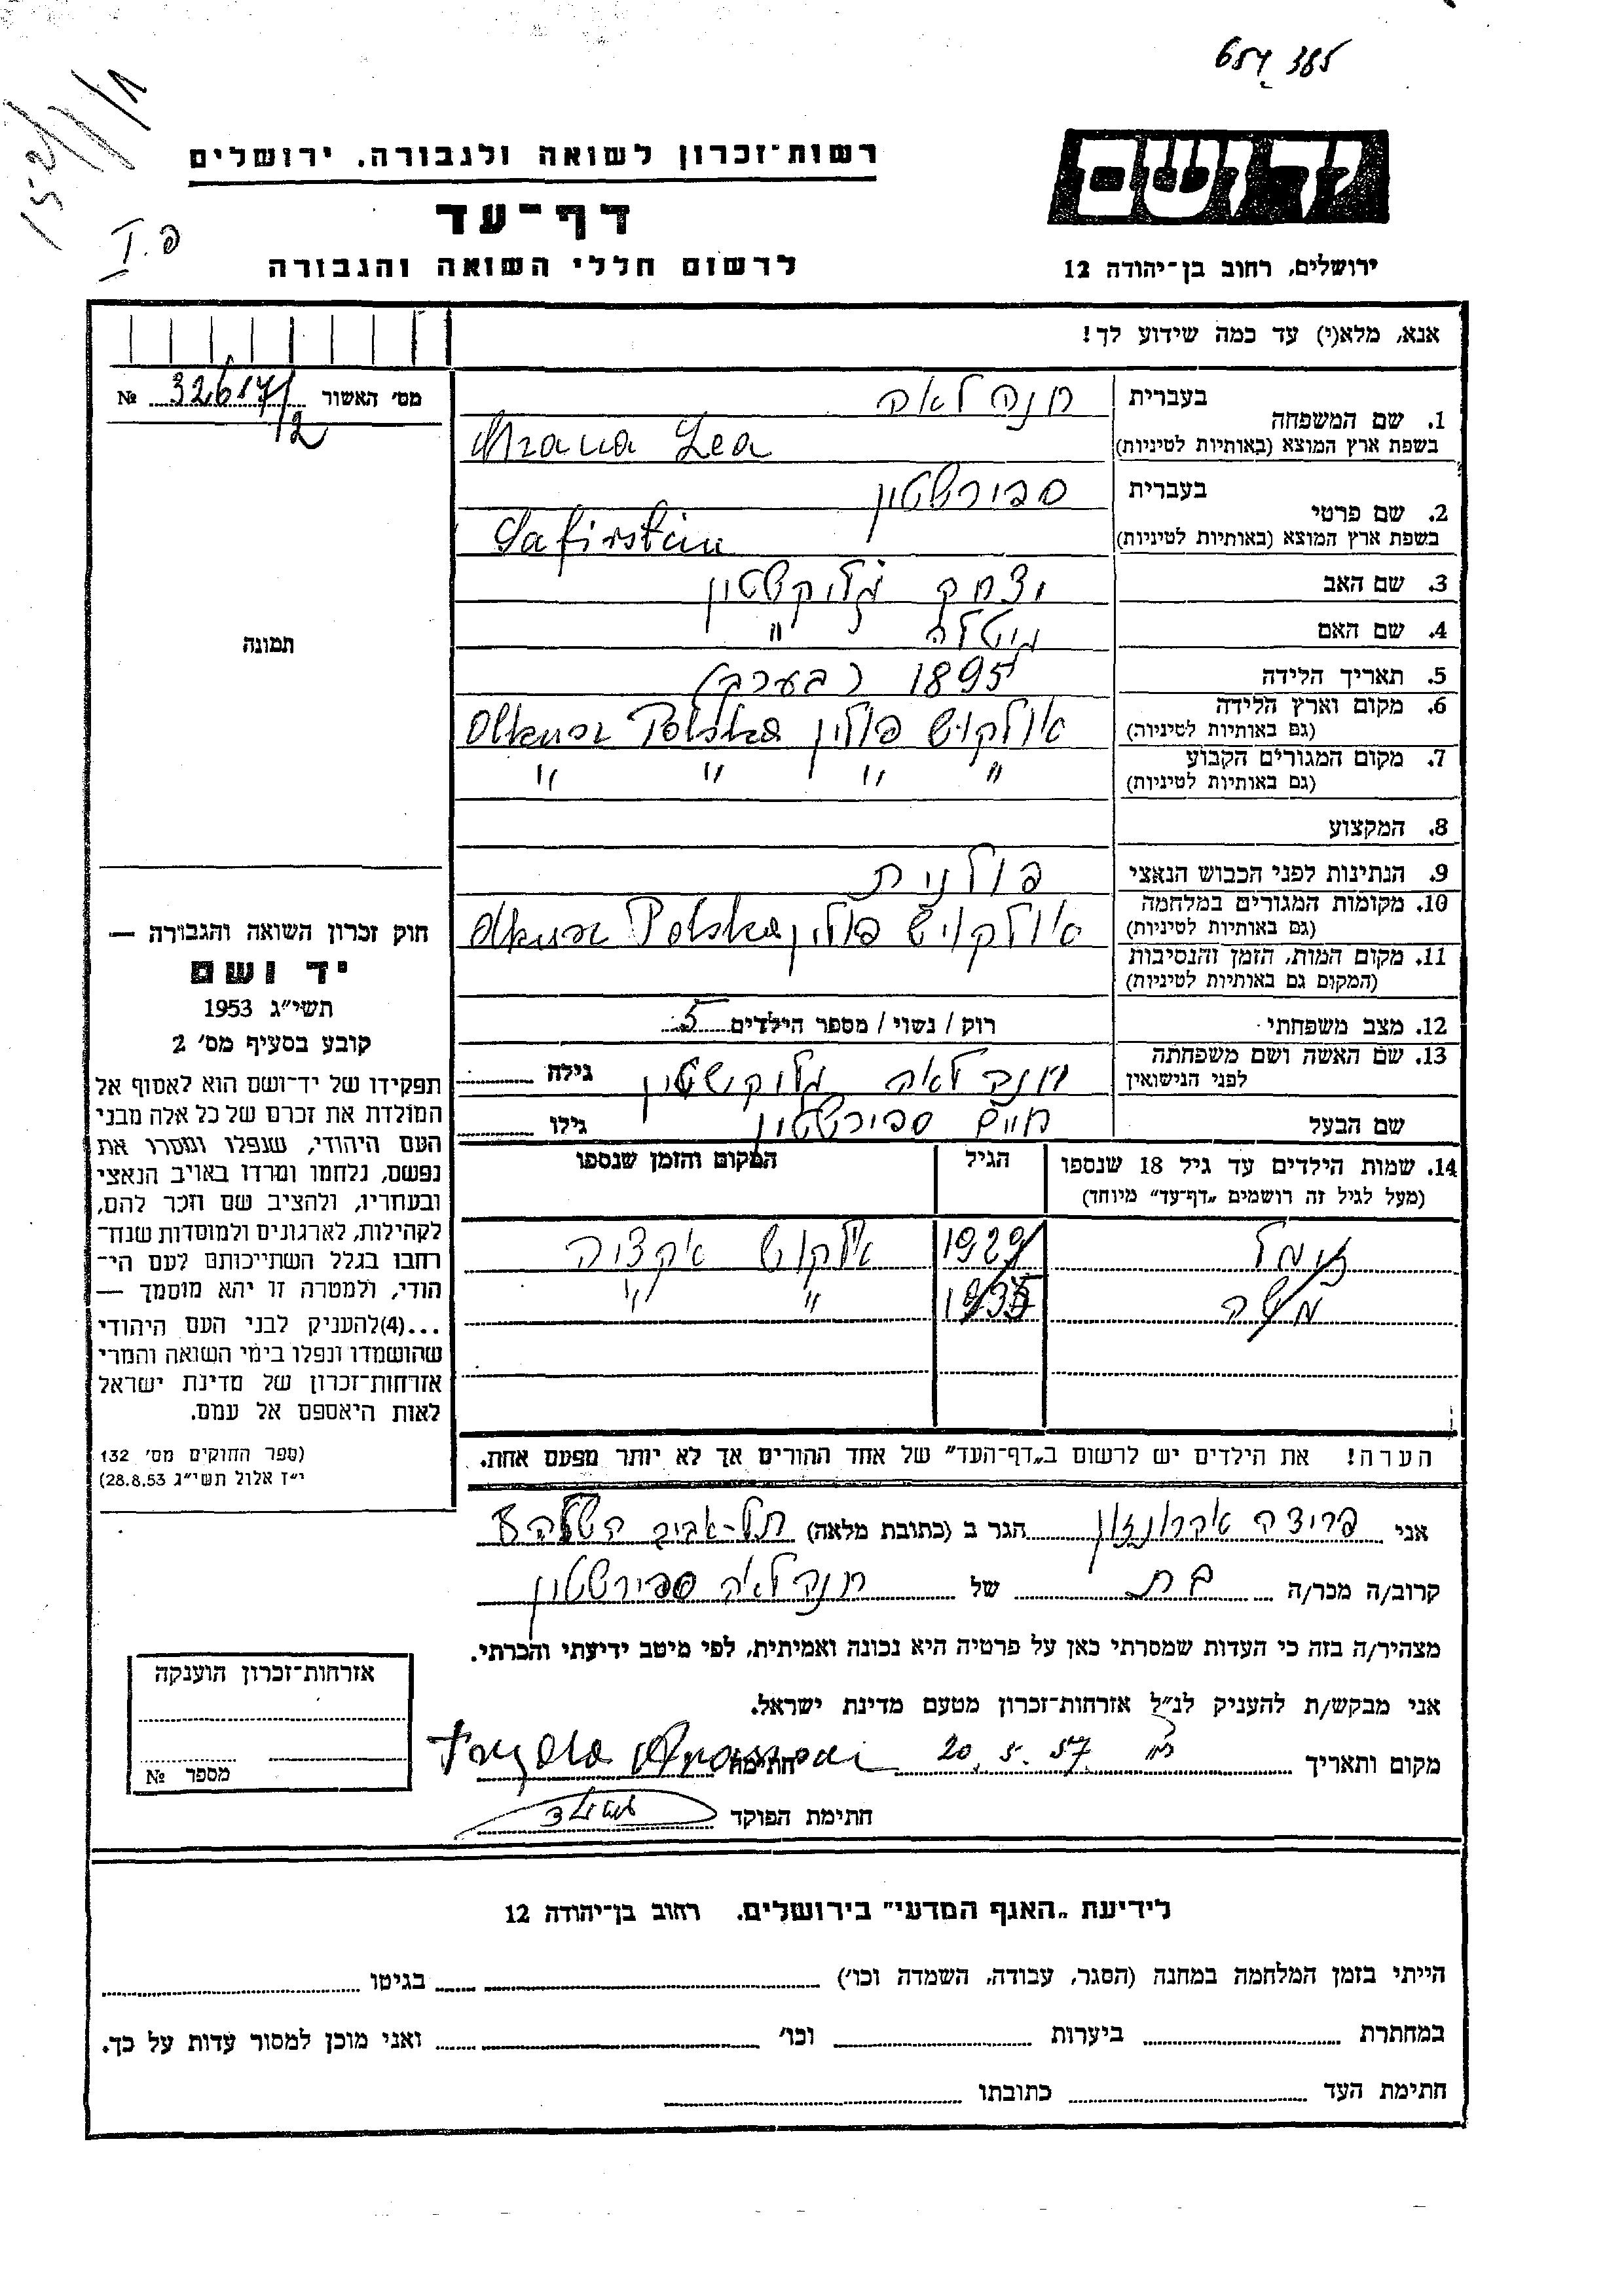 רשות-זכרון לשואה ולגבורה. ירושלים
דף-עד
לרשום חללי השואה והגבורה
יד ושם
ירושלים, רחוב בן-יהודה 12
אנא, מלא(י) עד כמה שידוע לך!
מס' האשור № 32617/12
1. שם המשפחה
בעברית חנה לאה
בשפת ארץ המוצא (באותיות לטיניות) Lea
2. שם פרטי
בעברית ספירשטין
בשפת ארץ המוצא (באותיות לטיניות) Safirstein
3. שם האב יצחק גלוקשטין
4. שם האם "
5. תאריך הלידה 1895 (בערך)
6. מקום וארץ הלידה (גם באותיות לטיניות) אולקוש פולין Olkusz Polska
7. מקום המגורים הקבוע (גם באותיות לטיניות) " " " "
8. המקצוע
9. הנתינות לפני הכבוש הנאצי פולנית
10. מקומות המגורים במלחמה (גם באותיות לטיניות) אולקוש פולין Olkusz Polska
11. מקום המות, הזמן והנסיבות (המקום גם באותיות לטיניות)
12. מצב משפחתי רוק / נשוי / מספר הילדים 5
13. שם האשה ושם משפחתה לפני הנישואין חנה לאה גלוקשטין גילה
שם הבעל חיים ספירשטין גילו
14. שמות הילדים עד גיל 18 שנספו (מעל לגיל זה רושמים „דף-עד" מיוחד)
הגיל
המקום והזמן שנספו
1929 אולקוש אקציה
משה 1935 " "
הערה! את הילדים יש לרשום ב„דף-העד" של אחד ההורים אך לא יותר מפעם אחת.
תמונה
חוק זכרון השואה והגבורה —
יד ושם
תשי"ג 1953
קובע בסעיף מס' 2
תפקידו של יד-ושם הוא לאסוף אל
המולדת את זכרם של כל אלה מבני
העם היהודי, שנפלו ומסרו את
נפשם, נלחמו ומרדו באויב הנאצי
ובעוזריו, ולהציב שם וזכר להם,
לקהילות, לארגונים ולמוסדות שנח-
רבו בגלל השתייכותם לעם הי-
הודי, ולמטרה זו יהא מוסמך —
...(4)להעניק לבני העם היהודי
שהושמדו ונפלו בימי השואה והמרי
אזרחות-זכרון של מדינת ישראל
לאות היאספם אל עמם.
(ספר החוקים מס' 132
י"ז אלול תשי"ג 28.8.53)
אני פרידה אהרונזון הגר ב (כתובת מלאה) תל-אביב
קרוב/ה מכר/ה בת של חנה לאה ספירשטין
מצהיר/ה בזה כי העדות שמסרתי כאן על פרטיה היא נכונה ואמיתית, לפי מיטב ידיעתי והכרתי.
אני מבקש/ת להעניק לנ"ל אזרחות-זכרון מטעם מדינת ישראל.
מקום ותאריך 20.5.57 חתימה
חתימת הפוקד
אזרחות-זכרון הוענקה
מספר №
לידיעת „האגף המדעי" בירושלים. רחוב בן-יהודה 12
הייתי בזמן המלחמה במחנה (הסגר, עבודה, השמדה וכו') בגיטו
במחתרת ביערות וכו' ואני מוכן למסור עדות על כך.
חתימת העד כתובתו